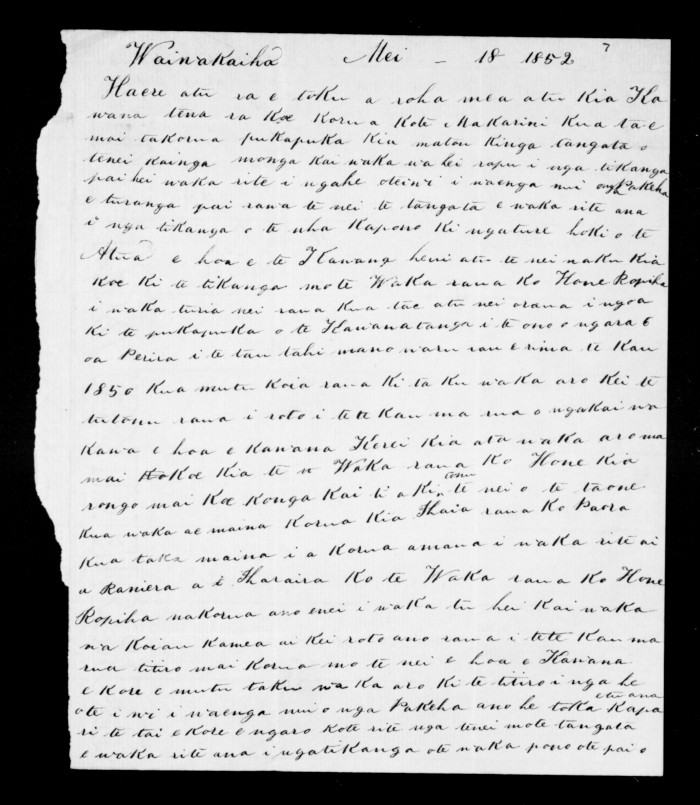 Wainwakaiha Mei – 18 1852 7
Haere atu ra e toku a roha mea atu Kia Ka
wana tena ra Koe Korua Kote Makarini Kua tae
mai takorua pukapuka Kia matou Kinga tangata o
tenei Kainga monga Kai waka wa hei rapu i nga tikanga
pai hei waka rite i ngahe oteiwi i waenga nui onga Pakeha
e turanga pai rawa te nei te tangata e waka rite ana
i nga tikanga o te wha Kapono Ki ngature hoki o te
Atua e hoa e te Kawana heni atu te nei naku Kia
Koe Ki te tikanga mote Waka raua Ko Hone Ropiha
i waka turia nei raua Kua tae atu nei oraua ingoa
Ki te pukapuka o te Kawanatanga i te ono o ngara 6
oa Perira i te tau tahi mano waru rau e rima te Kau
1850 Kua mutu Koia raua Ki ta Ku waka aro Kei te
tutonu raua i roto i te te Kau ma rua o ngakai wa
Kawa e hoa e Kawana Kerei Kia ata waka aro ma
mai Koe Kia te Waka raua Ko Hone Kia
rongo mai Koe Konga Kai ti a Ki tonu te nei o te taone
Kua waka ae maina Korua Kia Ihaia raua Ko Paora
Kua taka maina i a Korua amana i waka rite ai
a Raniera a i Iharaira Ko te Waka raua Ko Hone
Ropiha nakorua ano enei i waka tu hei Kai waka
wa Koiau Kamea ai Kei roto ano raua i te te Kau ma
rua titiro mai Korua mo te nei e hoa e Kawana
e Kore e mutu taku wa Ka aro Ki te titiro i nga he
ote i wi i waenga nui o nga Pakeha ano he toka etu ana Kapa
ri te tai e Kore e ngaro Kote rite nga tenei mote tangata
e waka rite ana i ngatikanga ote waka pono ote pai o